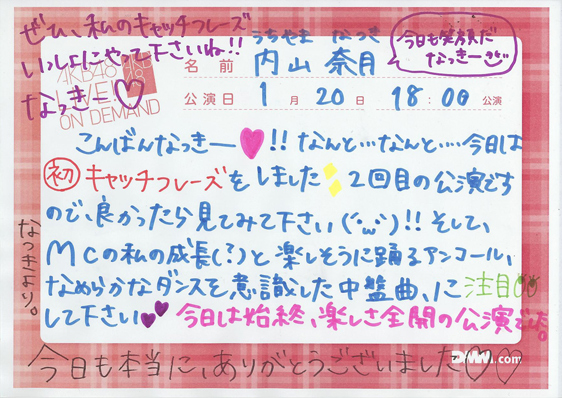 ぜひ、私のキャッチフレーズ
いっしょにやって下さいね!!
なっきー!♡
AKB48
LIVE!!
ON DEMAND
うちやま なつき
名前 内山 奈月
今日も笑顔だ
なっきー
公演日 1月20日 18:00 公演
こんばんなっきー♥!! なんと…なんと…今日は
初キャッチフレーズをしました 2回目の公演です
ので、良かったら見てみて下さい(´･ω･`)!! そして、
MCの私の成長(?)と楽しそうに踊るアンコール、
なめらかなダンスを意識した中盤曲、に注目
して下さい♥♥ 今日は始終、楽しさ全開の公演です。
なつきより。
今日も本当に、ありがとうございました♡♡
DMM.com